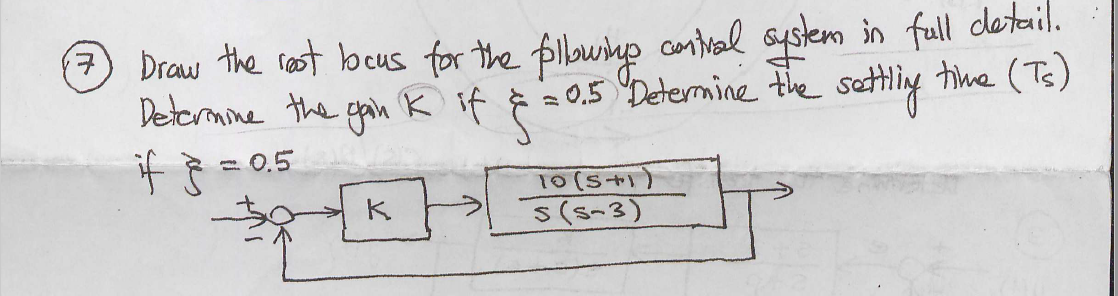 (7) Draw the root locus for the following control system in full detail.
Determine the gain K if ξ = 0.5 Determine the settling time (Ts)
if ξ = 0.5
+
-
K
10(s+1)
s(s-3)